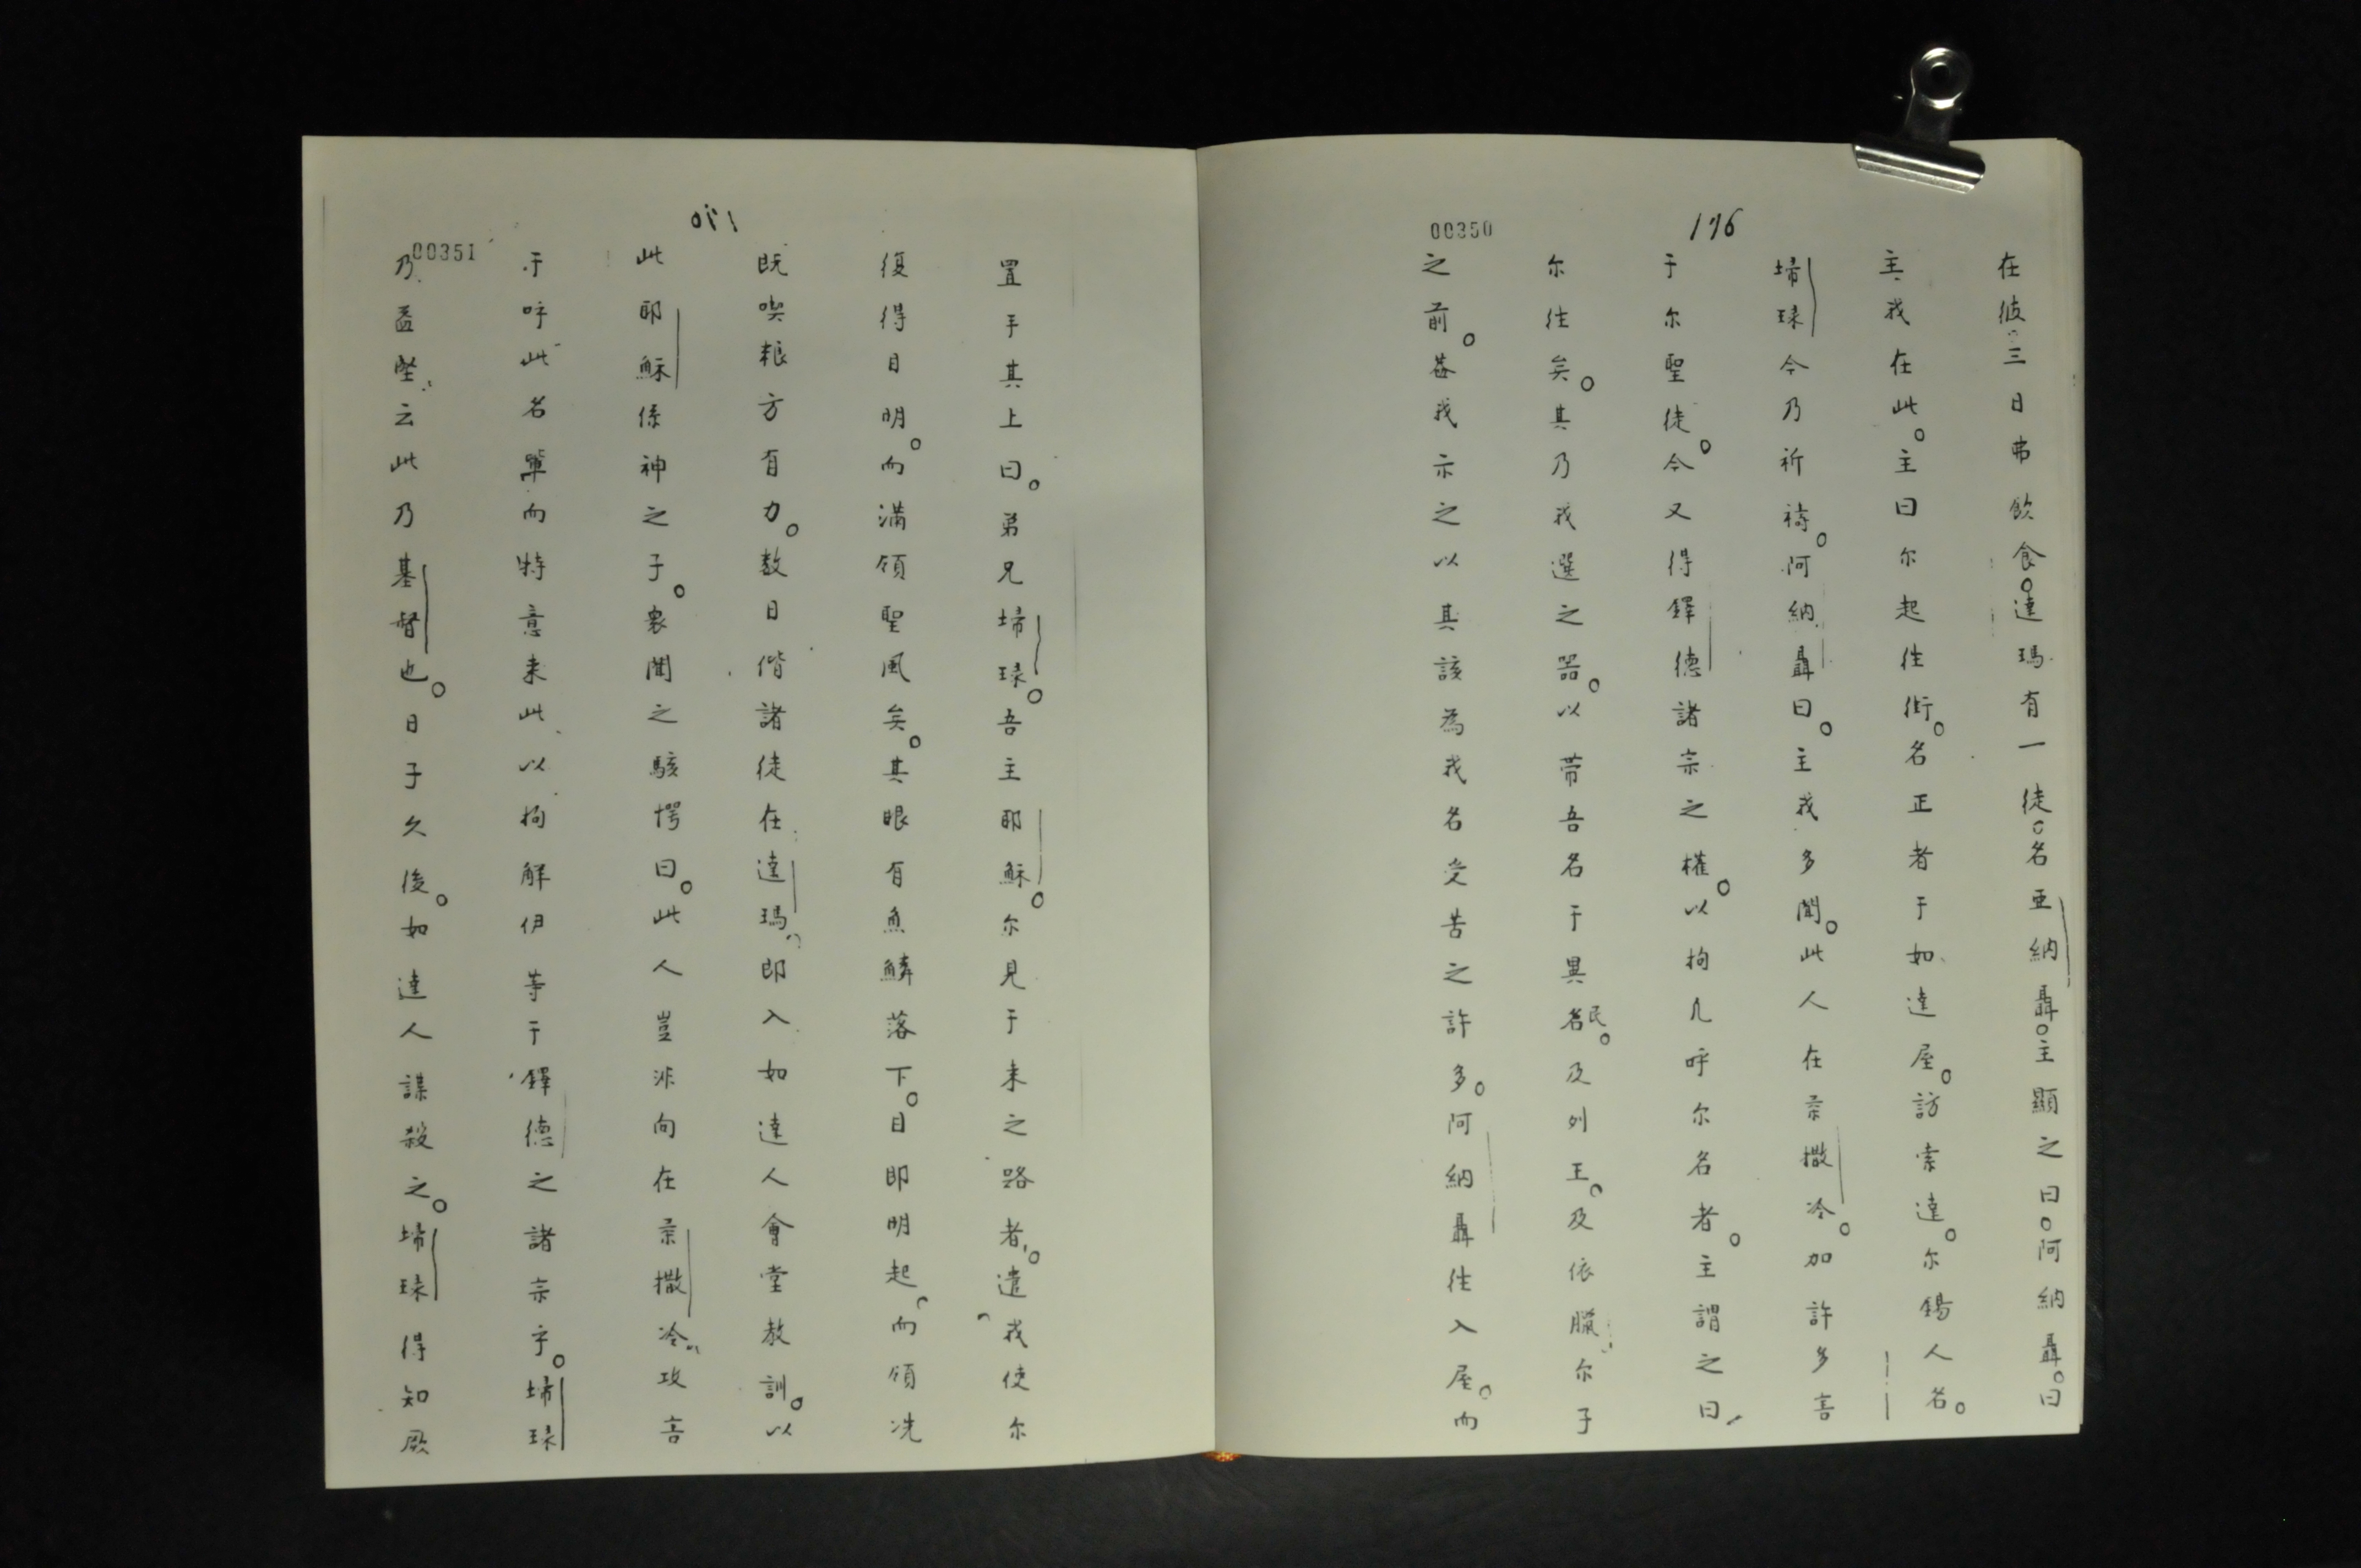 176
00350
在彼三日弗飲食。達瑪有一徒。名亜納聶。主顯之曰。阿納聶。曰
主、我在此。主曰尔起往街。名正者于如達屋。訪索達。尔錫人名。
埽琭今乃祈禱。阿納聶曰。主我多聞。此人在柔撒冷。加許多害
于尔聖徒。今又得鐸德諸宗之權。以拘凡呼尔名者。主謂之曰、
尔往矣。其乃我選之器。以带吾名于異名民。及列王。及依臘尔子
之前。葢我示之以其該為我名受苦之許多。阿納聶往入屋。而
00351
置手其上曰。弟兄埽琭。吾主耶穌。尔見于来之路者。遣我使尔
復得目明。而满領聖風矣。其眼有魚鱗落下。目即明起。而領洗
既喫粮方有力。数日偕諸徒在達瑪、即入如達人會堂教訓。以
此耶穌係神之子。衆聞之駭愕曰。此人豈非向在柔撒冷、攻害
于呼此名軰而特意来此、以拘觧伊等于鐸德之諸宗乎。埽琭
乃益堅、云此乃基督也。日子久後。如達人謀殺之。埽琭得知厥